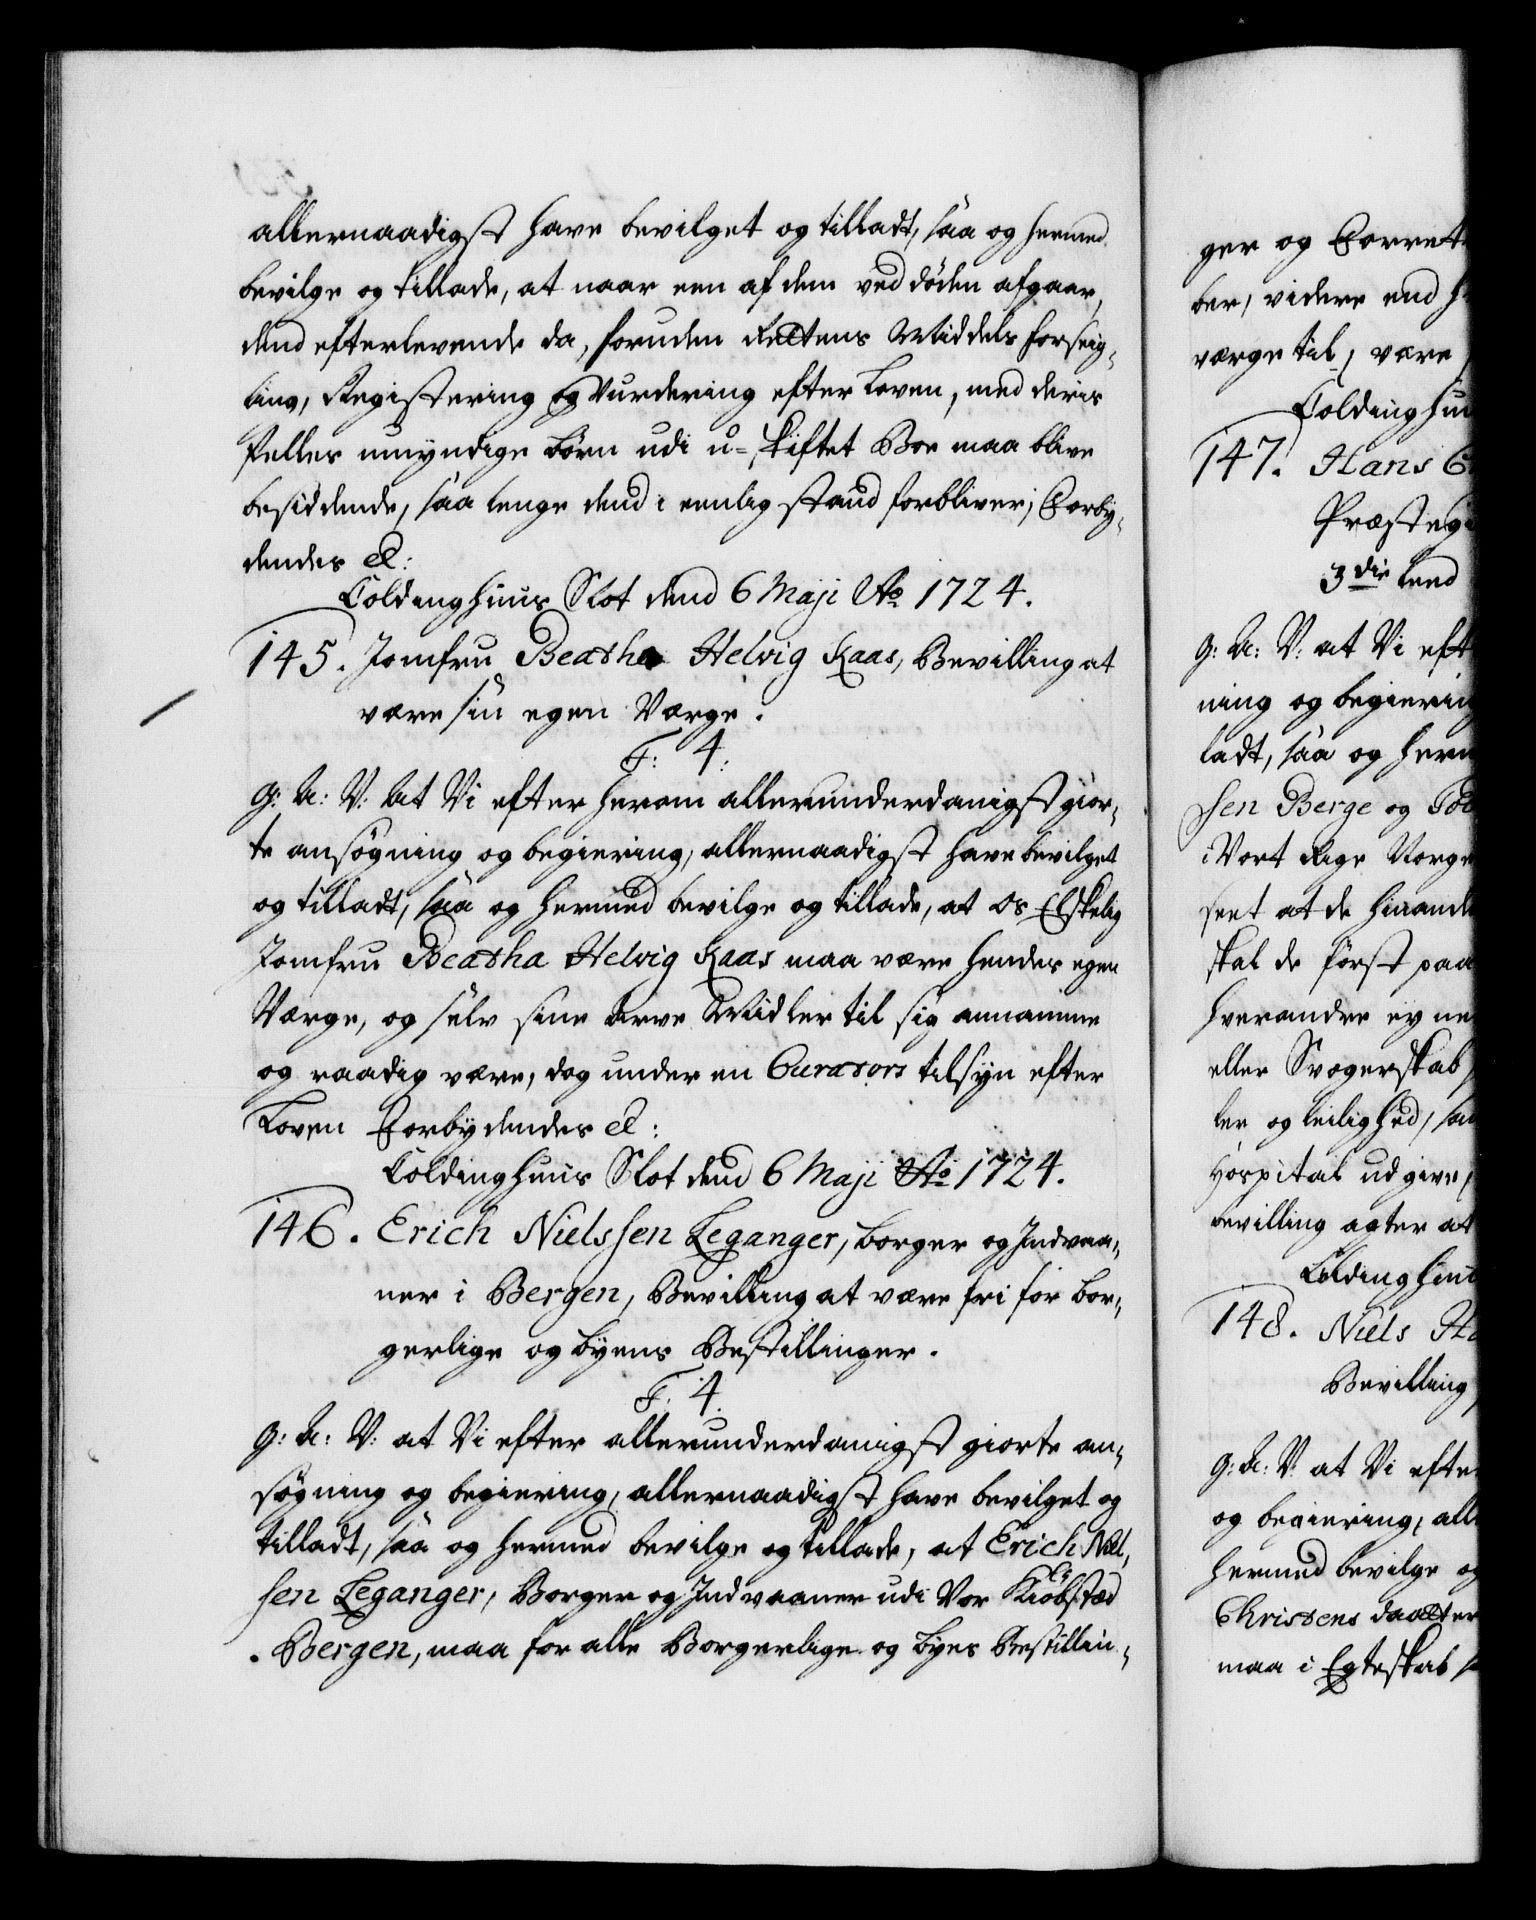 allernaadigst have bevilget og tilladt, saa og hermed
bevilge og tillade, at naar een af dem ved døden afgaar,
dend efterlevende da, foruden Rettens Middels forseig-
ling, Registering og Vurdering efter Loven, med deris
felles umyndige børn udi u-skiftet Boe maa blive
besiddende, saa lenge dend i eenlig stand forbliver; Forby-
dendes &c:
Coldinghuus Slot dend 6 Maji Ao 1724.
145. Jomfru Beatha Helvig Kaas, Bevilling at
være sin egen Værge.
F: 4:
G: A: V: At Vi efter herom allerunderdanigst gior-
te ansøgning og begiering, allernaadigst have bevilget
og tilladt, saa og hermed bevilge og tillade, at Os Elskelig
Jomfru Beatha Helvig Kaas maa være hendes egen
Værge, og selv sine Arve Midler til sig annamme
og raadig være, dog under en Curators tilsyn efter
Loven Forbydendes &c:
Coldinghuus Slot dend 6 Maji Ao 1724.
146. Erich Nielssen Leganger, borger og Indvaa-
ner i Bergen, Bevilling at være fri for bor-
gerlige og byens Bestillinger.
F. 4.
G: A: V: at Vi efter allerunderdanigst giorte an-
søgning og begiering, allernaadigst have bevilget og
tilladt, saa og hermed bevilge og tillade, at Erich Niel-
sen Leganger, Borger og Indvaaner udi Vor Kiøbstæd
Bergen, maa for alle Borgerlige og byes Bestillin-
ger og Forrett
ber, videre end h
værge til, være
Coldinghuu
147. Hans
Præstegi
3die leed
G: A: V: at Vi eft
ning og begiering
ladt, saa og herm
sen Berge og
i Vort Rige Norge
seet at de hinand
skal de først paa
hverandre ey ne
eller Svogerskab
ler og leilighed, saa
Hospital udgive,
bevilling agter at
Coldinghuu
148. Niels
Bevilling
G: A: V: at Vi efter
og begiering, all
hermed bevilge og
Christens daatter
maa i Egteskab